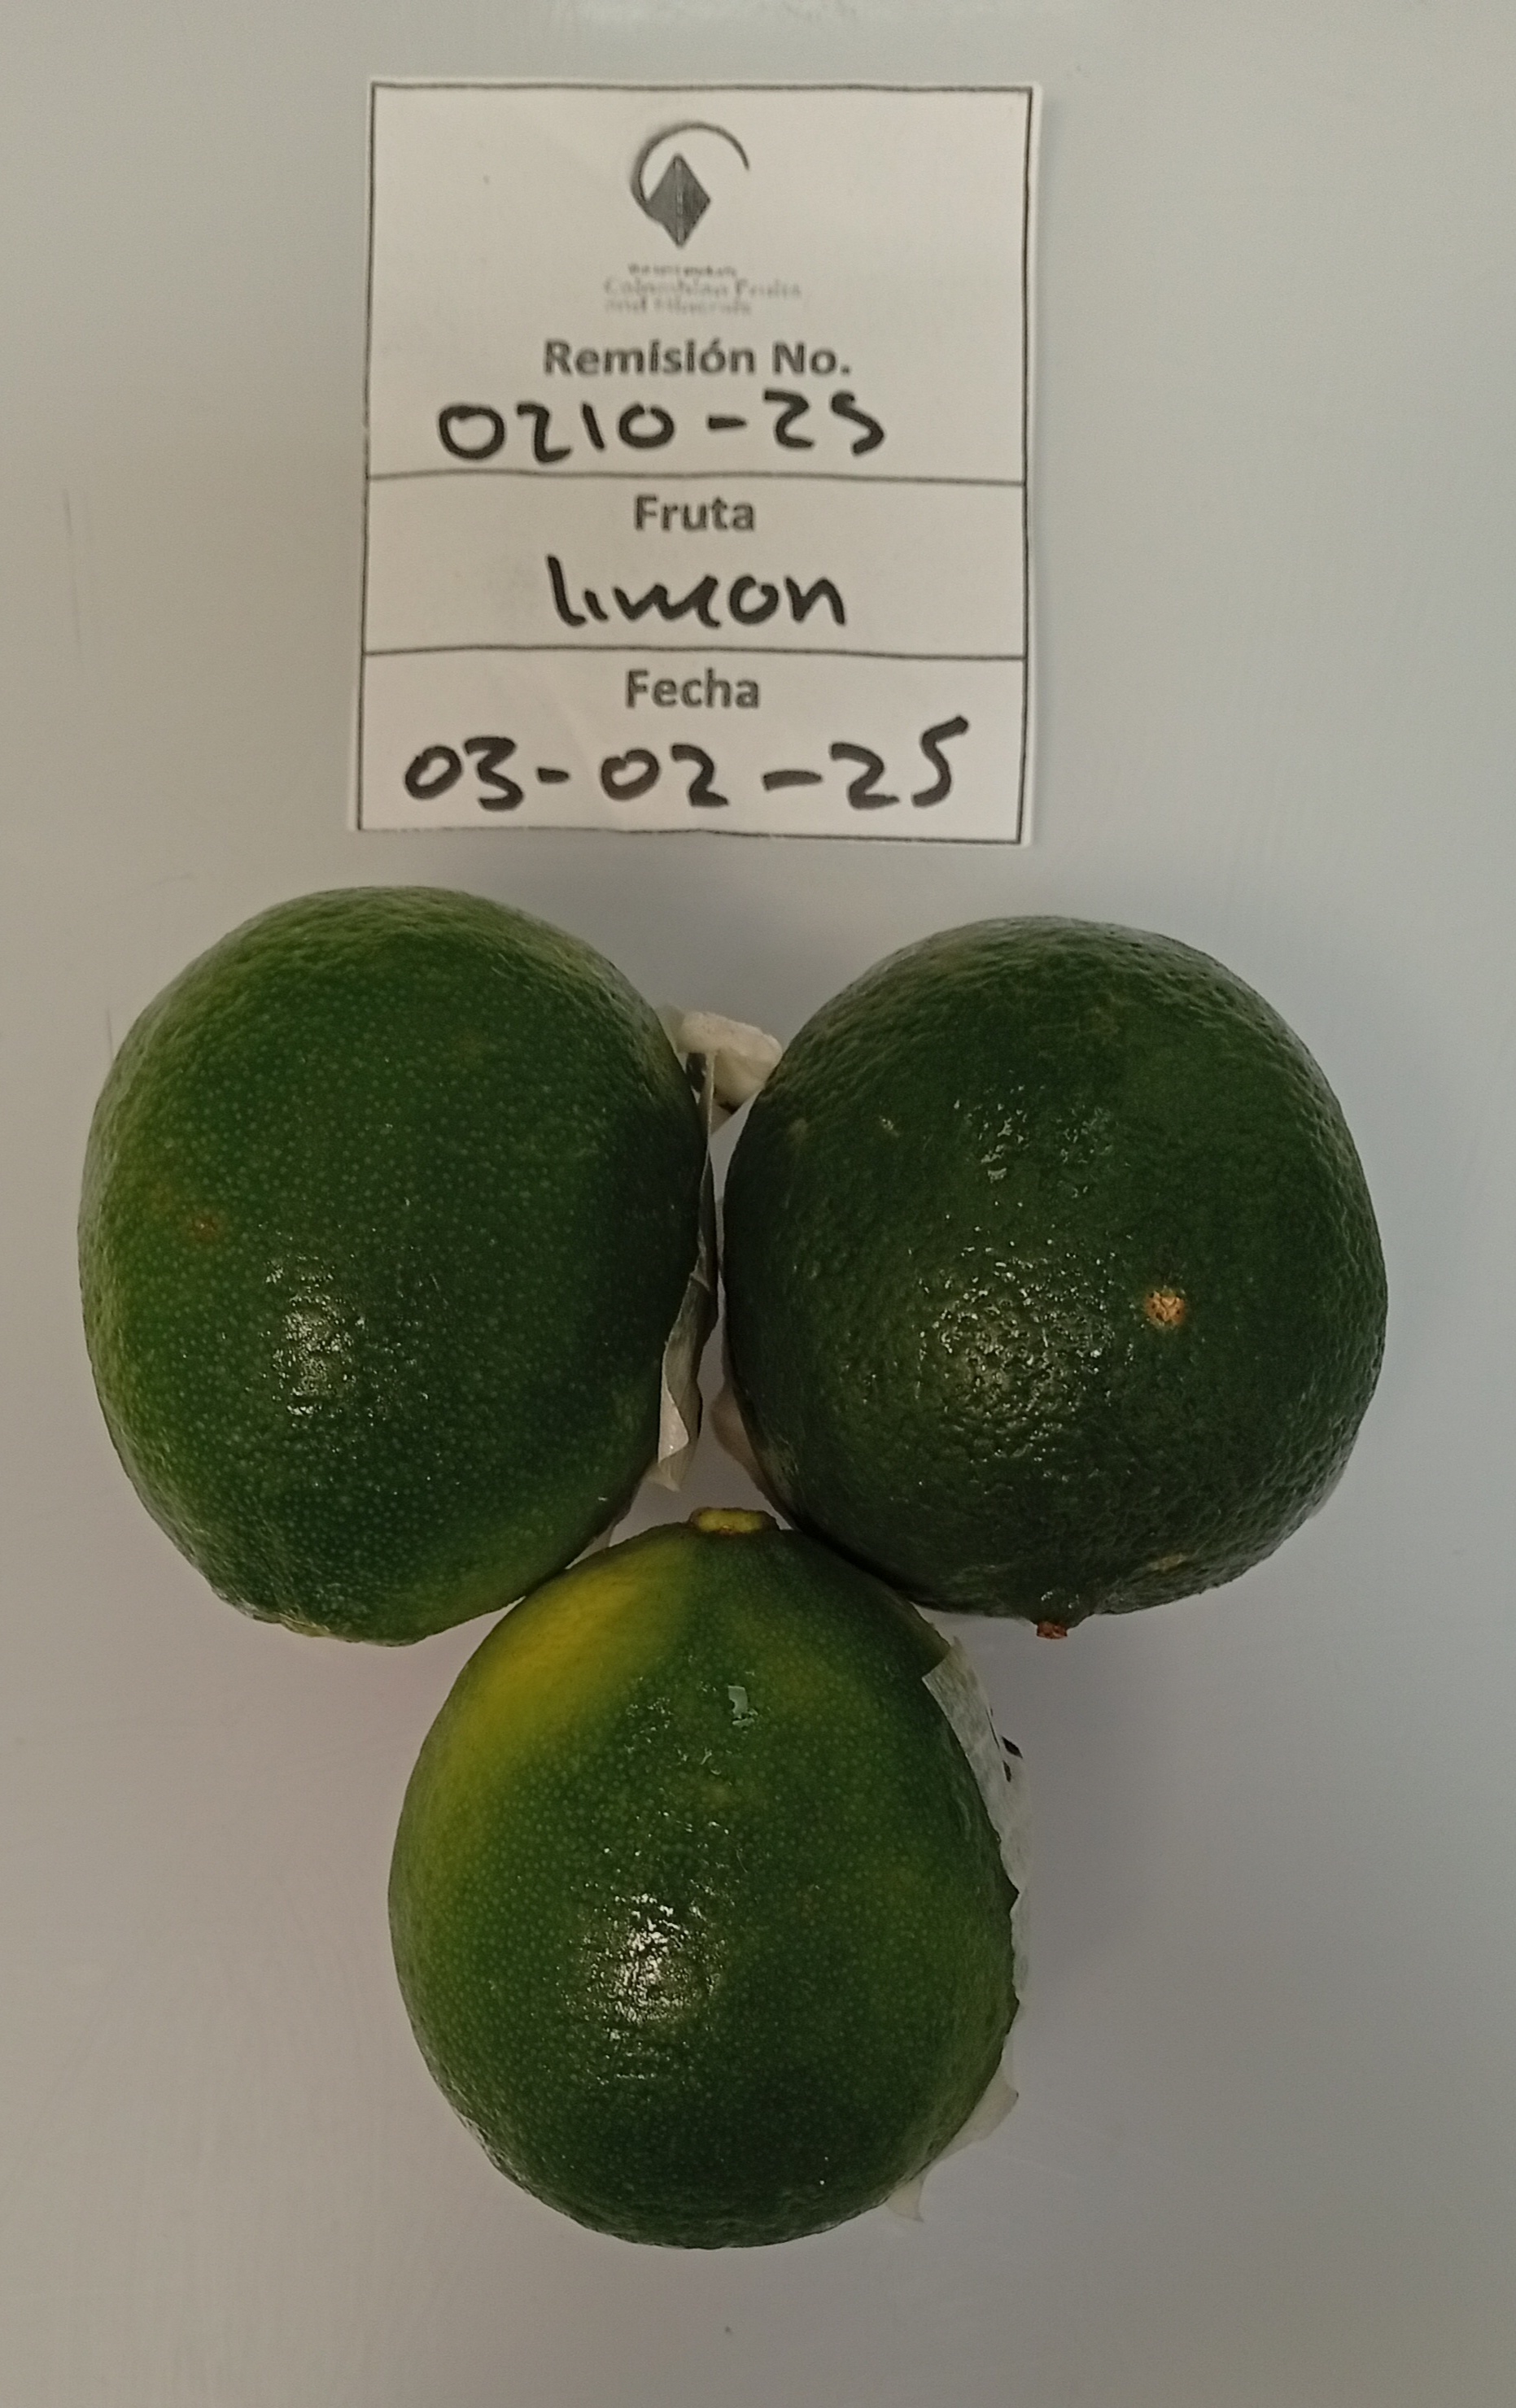 Colombian Fruits
and Minerals
Remisión No.
0210-25
Fruta
limon
Fecha
03-02-25